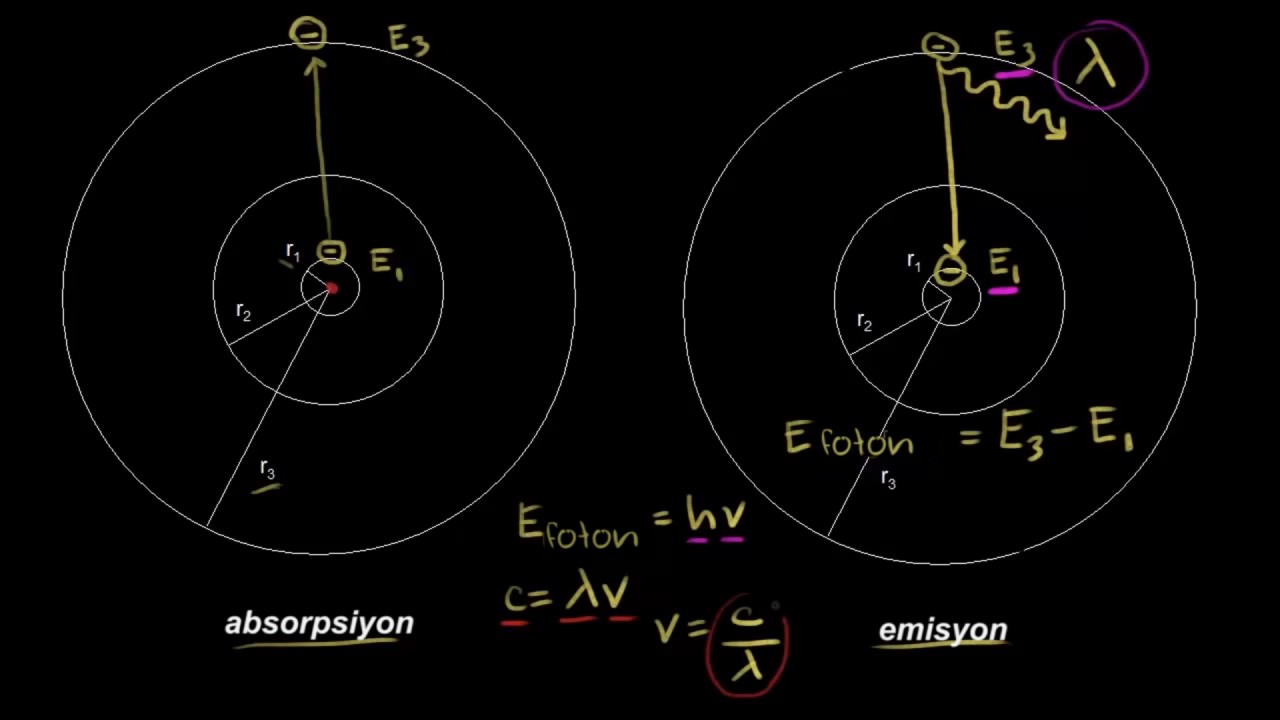 E₃
E₁
r₁
r₂
r₃
absorpsiyon
E₃
λ
E₁
r₁
r₂
r₃
E foton = E₃ - E₁
E foton = hν
c = λν
ν = c/λ
emisyon